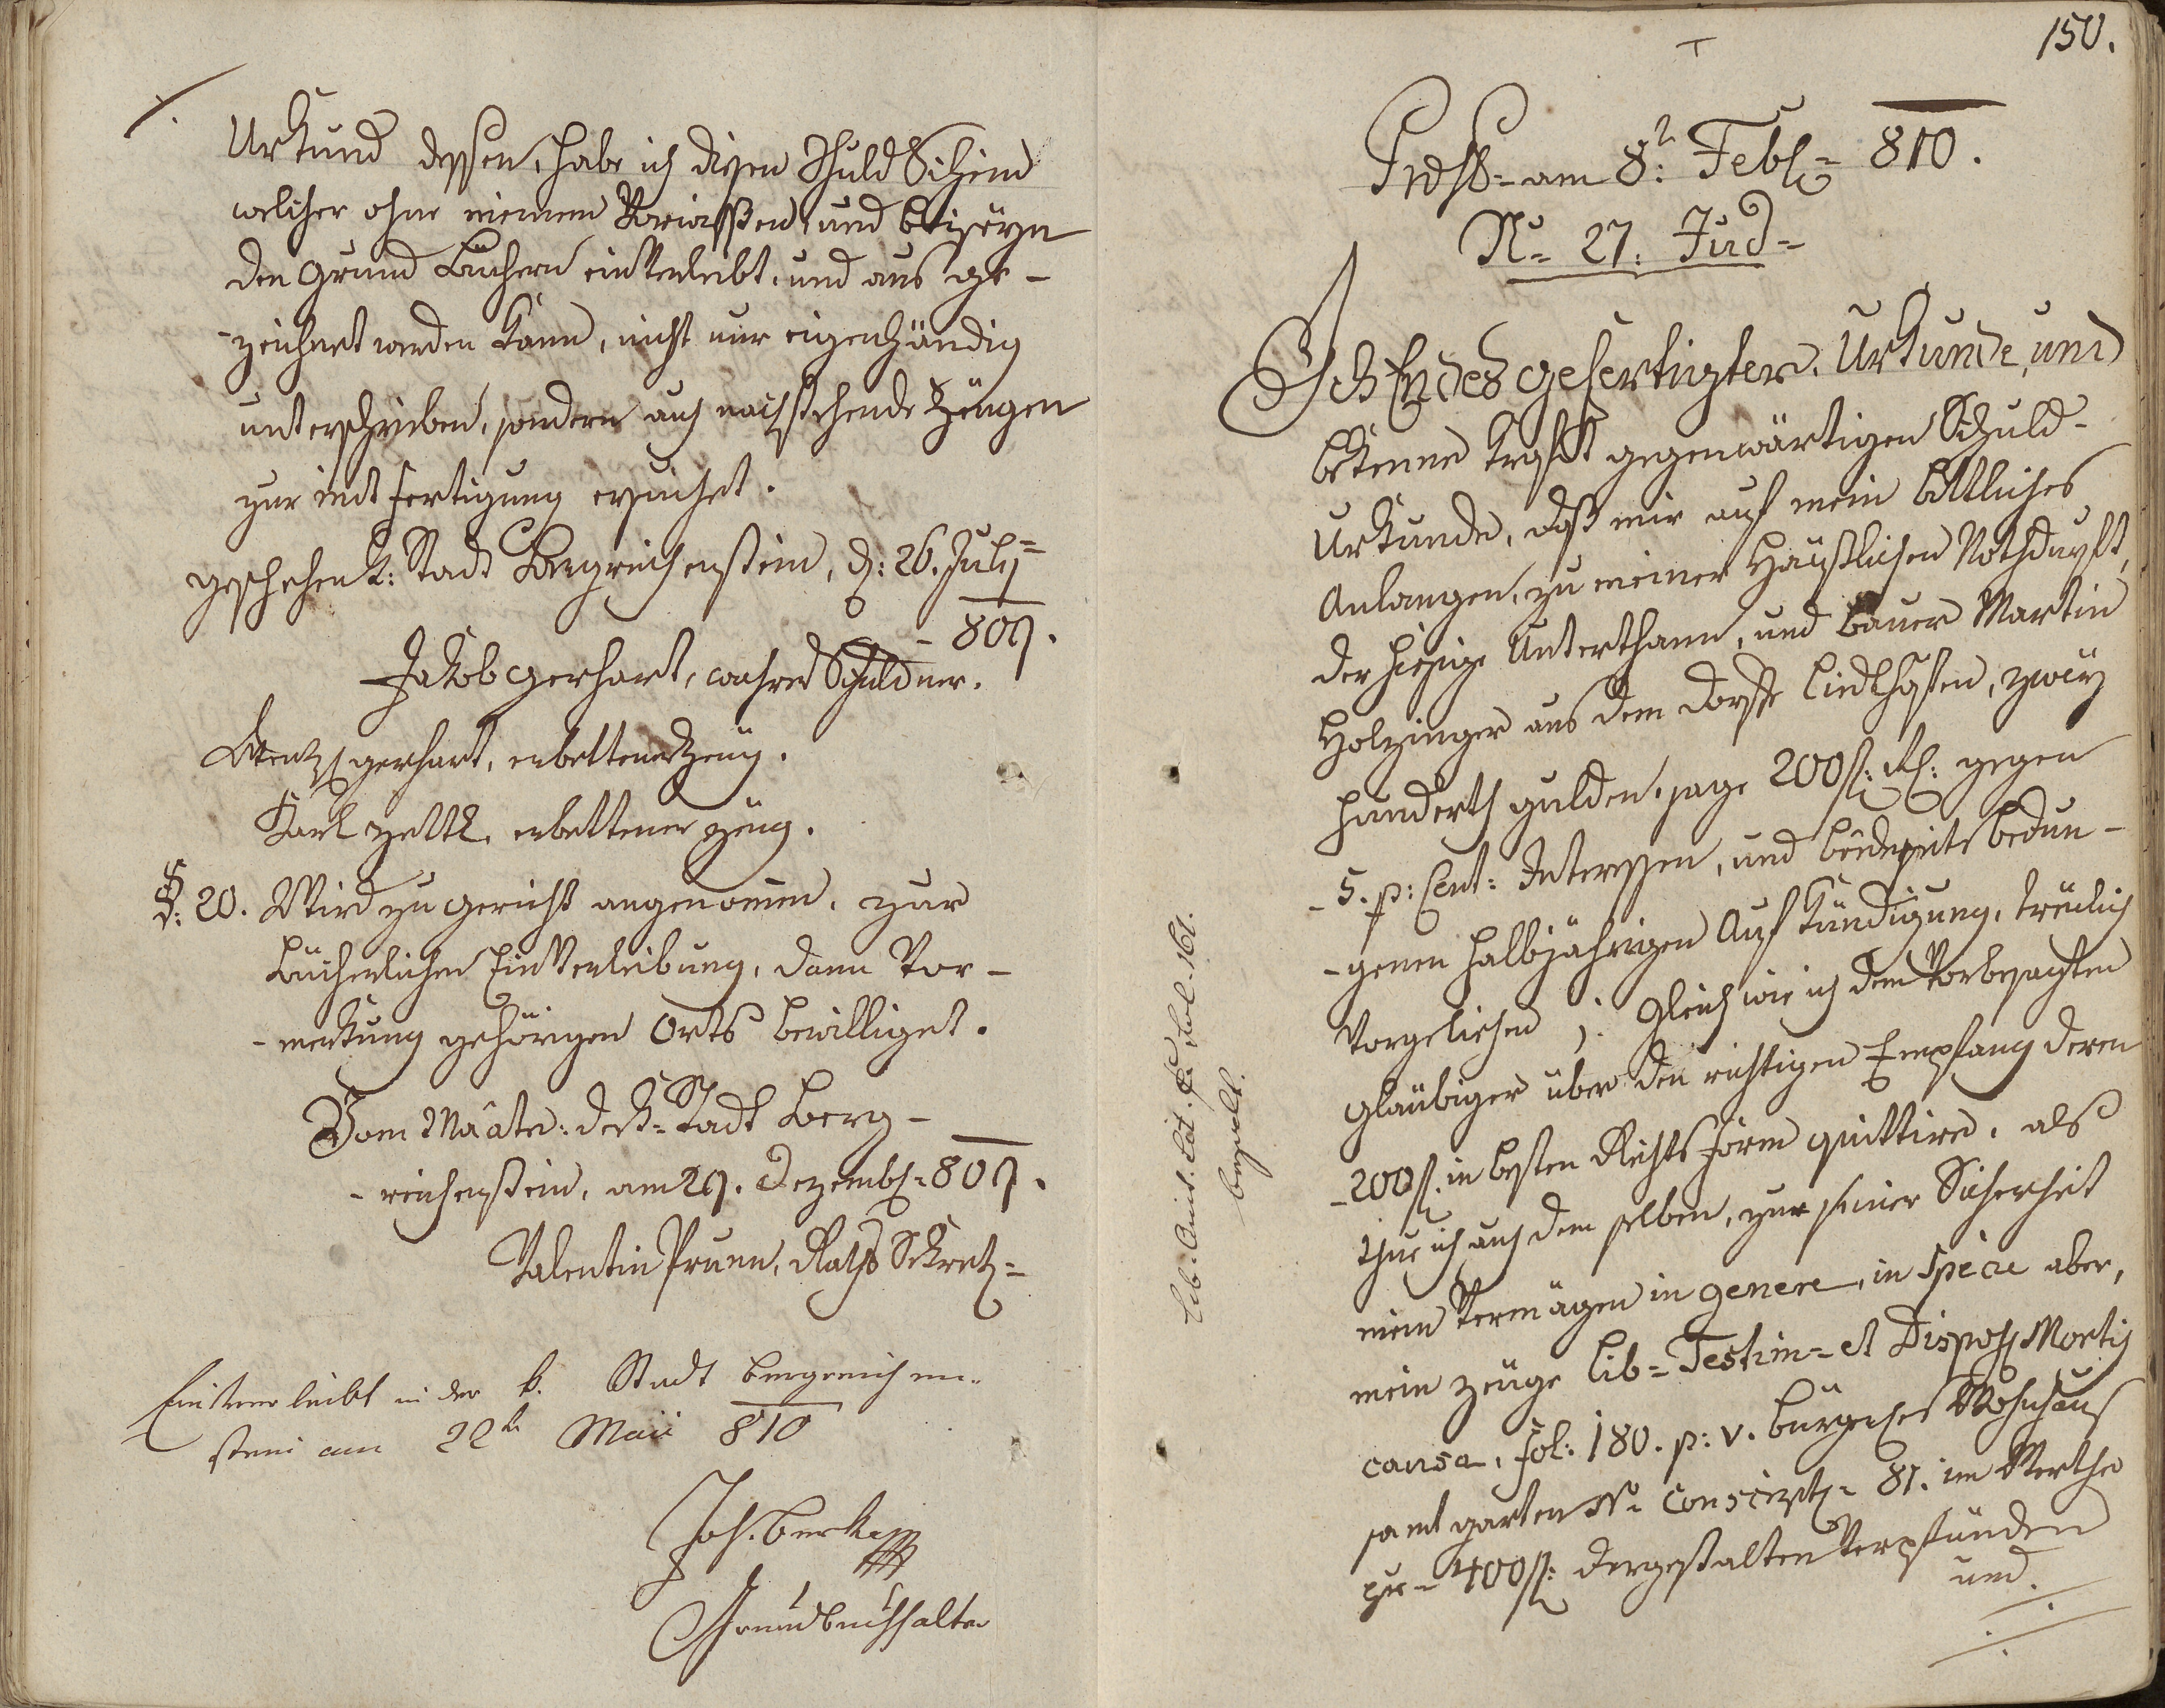 Urkund dessen, habe ich diesen Schuld Schein
welcher ohne meinem Vorwissen, und beiseyn
den Grund Büchern einverleibt, und aus ge-
-zeichnet werden kann, nicht nur eigenhändig
unterschrieben, sondern auch nachstehende Zeugen
zur mit fertigung ersuchet.
geschehen k: Stadt Bergreichenstein, d: 26. July
- 809.
Jakob Gerhart, wahrer Schuldner.
Wentzl Gerhart, erbettener Zeug.
Karl erbettener Zeug.
d: 20. Wird zu Gericht angenomen, zur
bücherlichen Einverleibung, dann Vor-
-merkung gehörigen Orts bewilliget.
Vom Maâte: der k: Stadt Berg-
-reichenstein, am 29. Dezemb: 809.
Valentin Prunn, Raths Sekret:
Einverleibt in der k. Stadt Bergreichen-
stein am 22t Maii 810
Joh. Berka
Grundbuchhalter
150.
am 8t: Feb: 810.
N= 27. Jud=
Ich Endes gefertigter, Urkunde, und
bekenne kraft gegenwärtigen Schuld-
Urkunde, daß mir auf mein bittliches
Anlangen, zu meiner Häußlichen Nothdurft,
der hiesige Unterthann, und Bauer Martin
Holzinger aus dem Dorfe Liedlhöfen, zwey
hundert gulden, sage 200 f: gegen
-5. p: Cent: Interessen, und beiderseits bedun-
-genen halbjährigen Aufkündigung, treulich
vorgeliehen; Gleich wie ich dem vorbesagten
Gläubiger über den richtigen Empfang deren
-200 f: in besten Rechts form quittire, als
thue ich auch dem selben, zur seiner Sicherheit
mein Vermögen in genere, in specie aber,
mein zeuge Lib= Testim= et Disposs: Mortis
causa, fol: 180. p: v. Bürgerliches Wohnhaus
samt garten N= Conscript= 81. im Werthe
per - 400 f: dergestalten verpfänden
und.